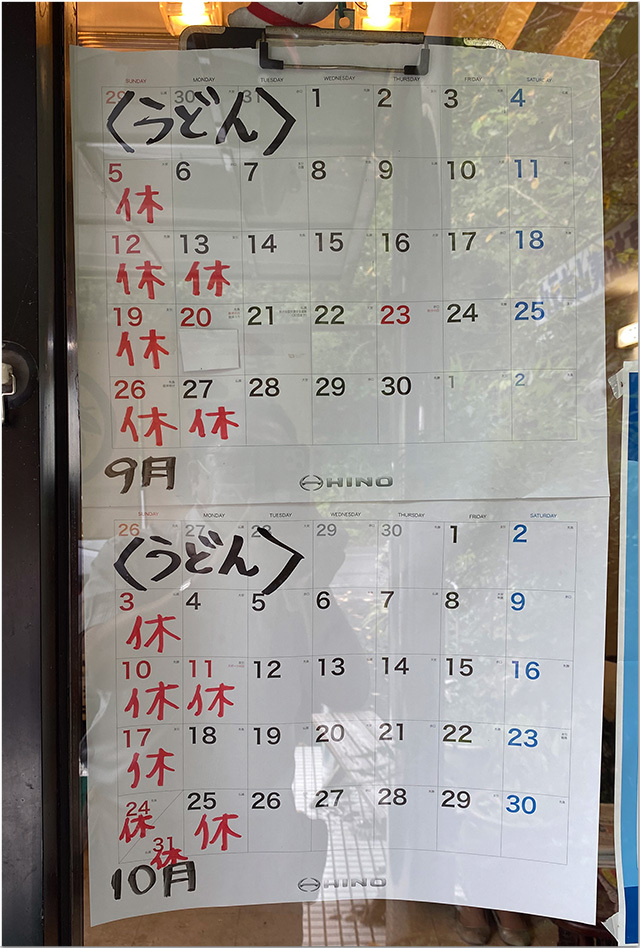 SUNDAY MONDAY TUESDAY WEDNESDAY THURSDAY FRIDAY SATURDAY
29 30 31 1 2 3 4
〈うどん〉
5 6 7 8 9 10 11
休
12 13 14 15 16 17 18
休 休
19 20 21 22 23 24 25
休
26 27 28 29 30 1 2
休 休
9月
HINO
SUNDAY MONDAY TUESDAY WEDNESDAY THURSDAY FRIDAY SATURDAY
26 27 28 29 30 1 2
〈うどん〉
3 4 5 6 7 8 9
休
10 11 12 13 14 15 16
休 休
17 18 19 20 21 22 23
休
24 25 26 27 28 29 30
休 休
31
休
10月
HINO